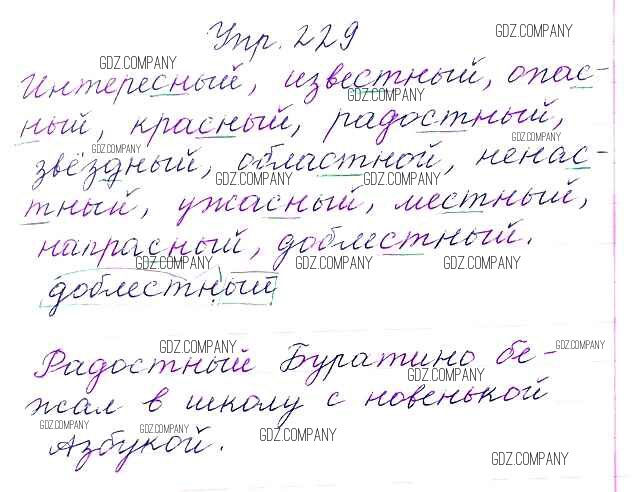 Упр. 229
GDZ.COMPANY
GDZ.COMPANY
Интересный, известный, опас-
GDZ.COMPANY
ный, красный, радостный,
GDZ.COMPANY
GDZ.COMPANY
звёздный, областной, ненас-
GDZ.COMPANY
GDZ.COMPANY
тный, ужасный, местный,
напрасный, доблестный.
GDZ.COMPANY
GDZ.COMPANY
GDZ.COMPANY
доблестный
GDZ.COMPANY
GDZ.COMPANY
Радостный Буратино бе-
GDZ.COMPANY
жал в школу с новенькой
GDZ.COMPANY
GDZ.COMPANY
GDZ.COMPANY
Азбукой.
GDZ.COMPANY